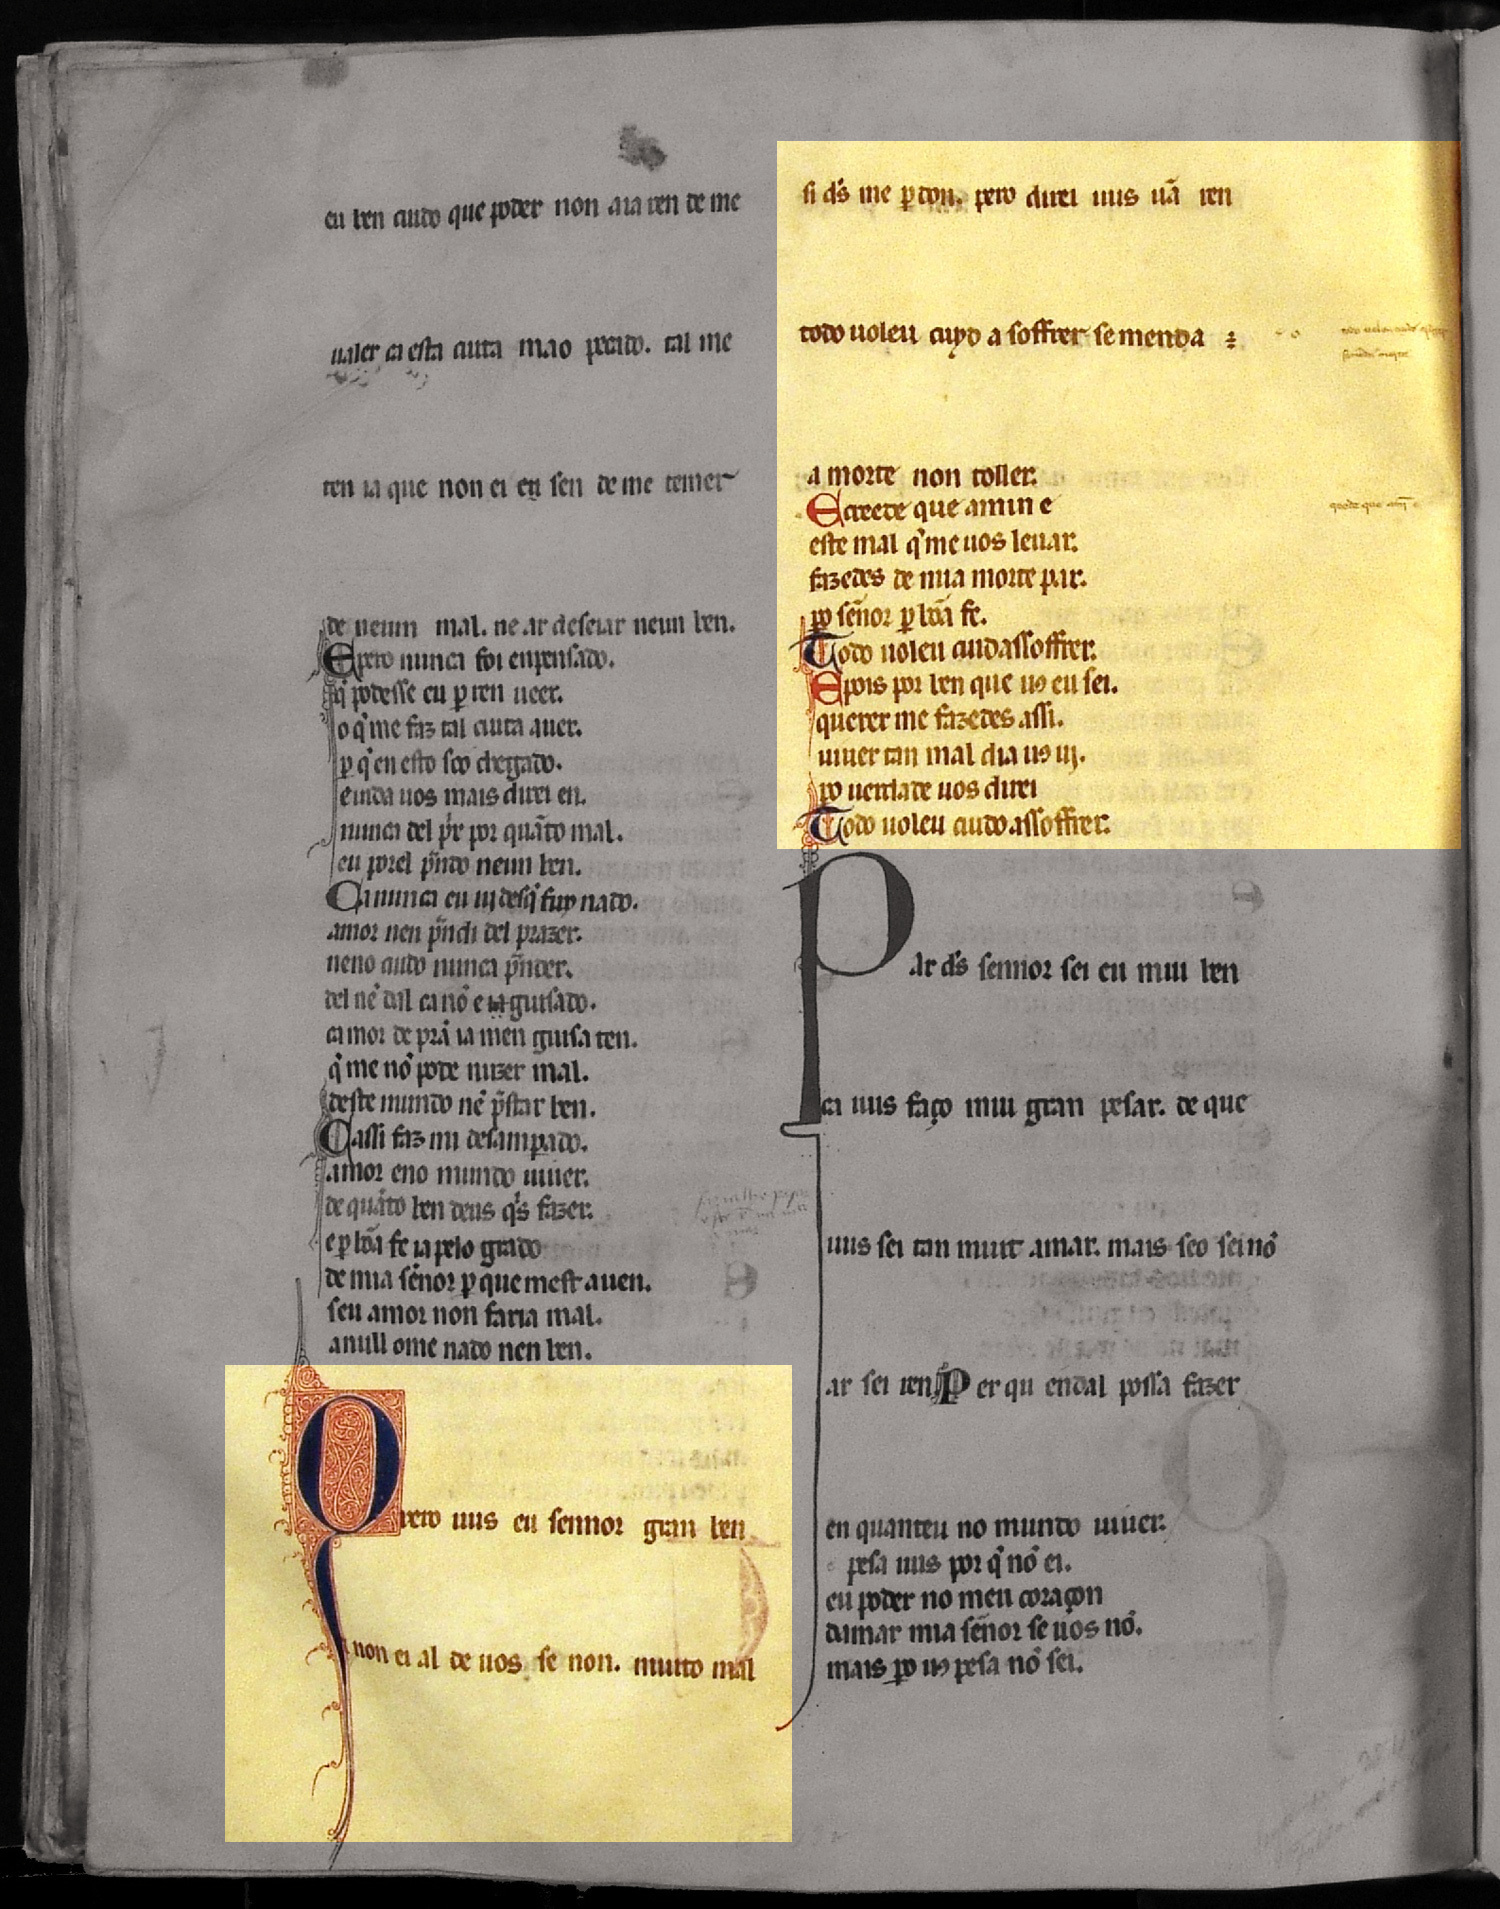 eu ben cuido que poder non aia ren de me
ualer ca esta cuita mao pecado. tal me
ten ia que non ei eu sen de me temer
de neum mal. ne ar deseiar neun ben.
Epero nunca foi enpensado.
q̄ podesse eu ꝑ ren ueer.
o q̄ me faz tal cuita auer.
ꝑ q̄ en esto soo chegado.
einda uos mais direi en.
nunca del pr̄ por quāto mal.
eu porel p̄ndo neun ben.
Ca nunca eu uj desq̄ fuy nado.
amor nen p̄ndi del prazer.
neno cuido nunca p̄nder.
del nē dal ca nō e ia guisado.
camor de prā ia men guisa ten.
q̄ me nō pode nuzer mal.
deste mundo nē p̄star ben.
Cassi faz mi desamꝑado.
amor eno mundo uiuer.
de quāto ben deus q̄s fazer.
e ꝑ bōa fe ia pelo grado
de mia sēnor ꝑ que mest auen.
seu amor non faria mal.
a null ome nado nen ben.
Quero uus eu sennor gran ben
non ei al de uos se non. muito mal
si ds̄ me ꝑdon. pero direi uus ūa ren
todo uoleu cuydo a soffrer se menda
a morte non toller.
Ecreede que a min e
este mal q̄ me uos leuar.
fazedes de mia morte par.
ꝑo sēnor ꝑ bōa fe.
Todo uoleu cuidassoffrer.
Epois por ben que uꝯ eu sei.
querer me fazedes assi.
uiuer tan mal dia uꝯ uj.
ꝑo uerdade uos direi
Todo uoleu cuido assoffrer.
Par ds̄ sennor sei eu mui ben
ca uus faço mui gran pesar. de que
uus sei tan muit amar. mais seo sei nō
ar sei ren Per qu endal possa fazer
en quanteu no mundo uiuer.
pesa uus por q̄ nō ei.
eu poder no meu coraçon
damar mia sēnor se uos nō.
mais ꝑo uꝯ pesa nō sei.